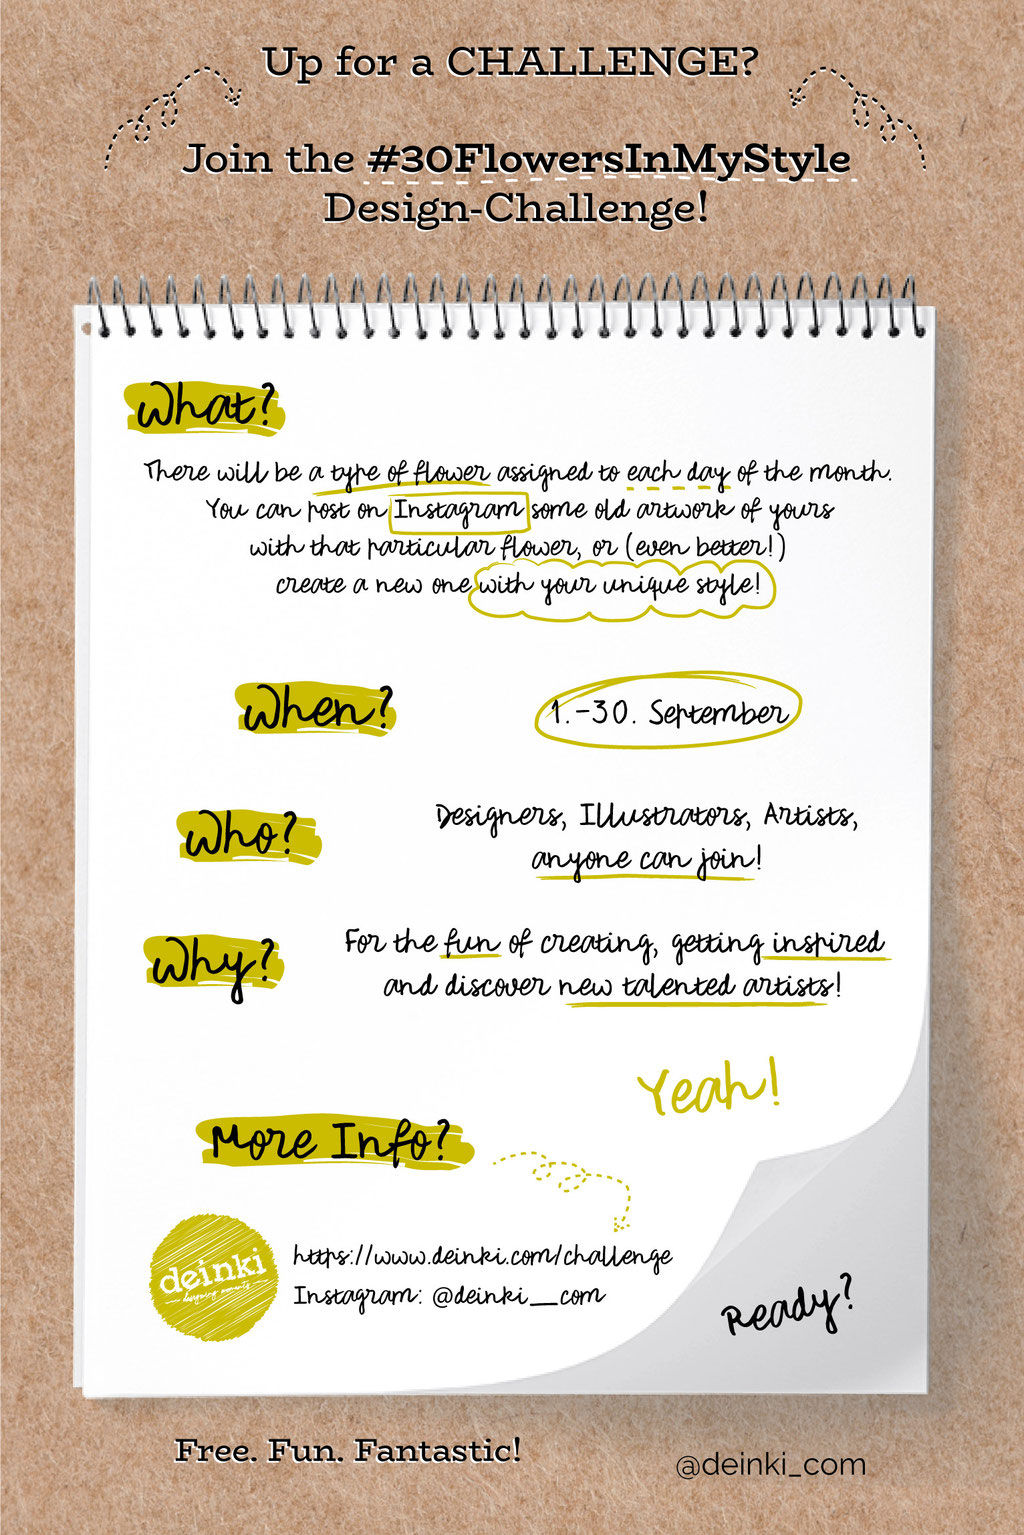 Up for a CHALLENGE?
Join the #30FlowersInMyStyle
Design-Challenge!
What?
There will be a type of flower assigned to each day of the month.
You can post on Instagram some old artwork of yours
with that particular flower, or (even better!)
create a new one with your unique style!
When?
1.-30. September
Who?
Designers, Illustrators, Artists,
anyone can join!
Why?
For the fun of creating, getting inspired
and discover new talented artists!
Yeah!
More Info?
deinki
designing moments
https://www.deinki.com/challenge
Instagram: @deinki_com
Ready?
Free. Fun. Fantastic!
@deinki_com